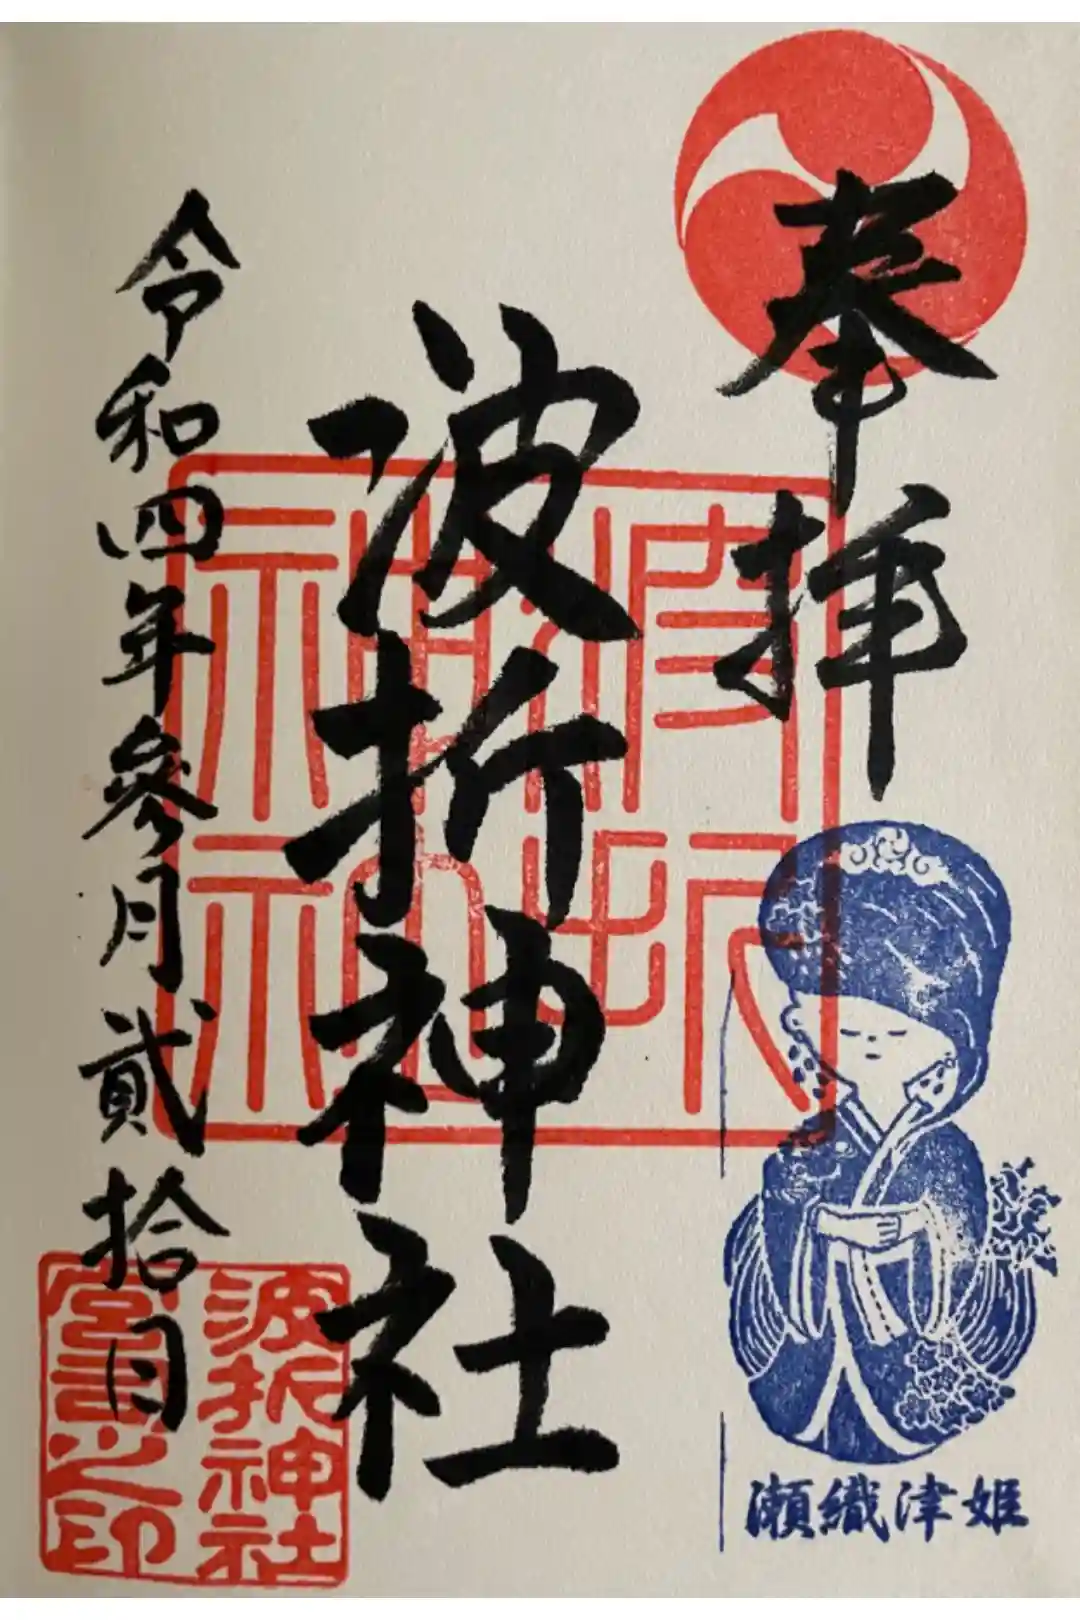 奉拝
波折神社
令和四年参月貳拾日
波折神社
波折神社
宮司之印
瀬織津姫